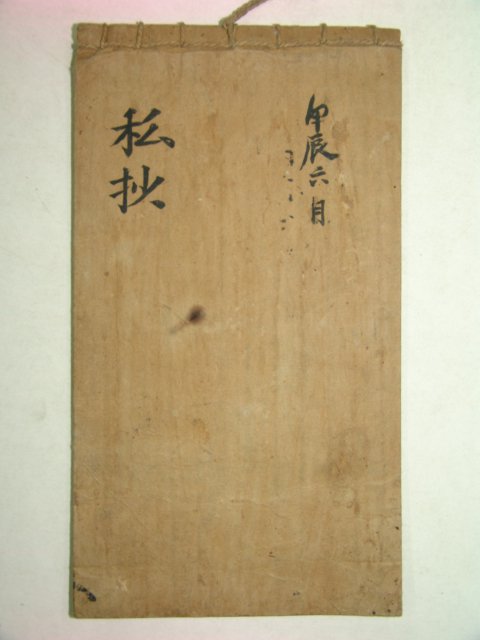 甲辰六月
私抄